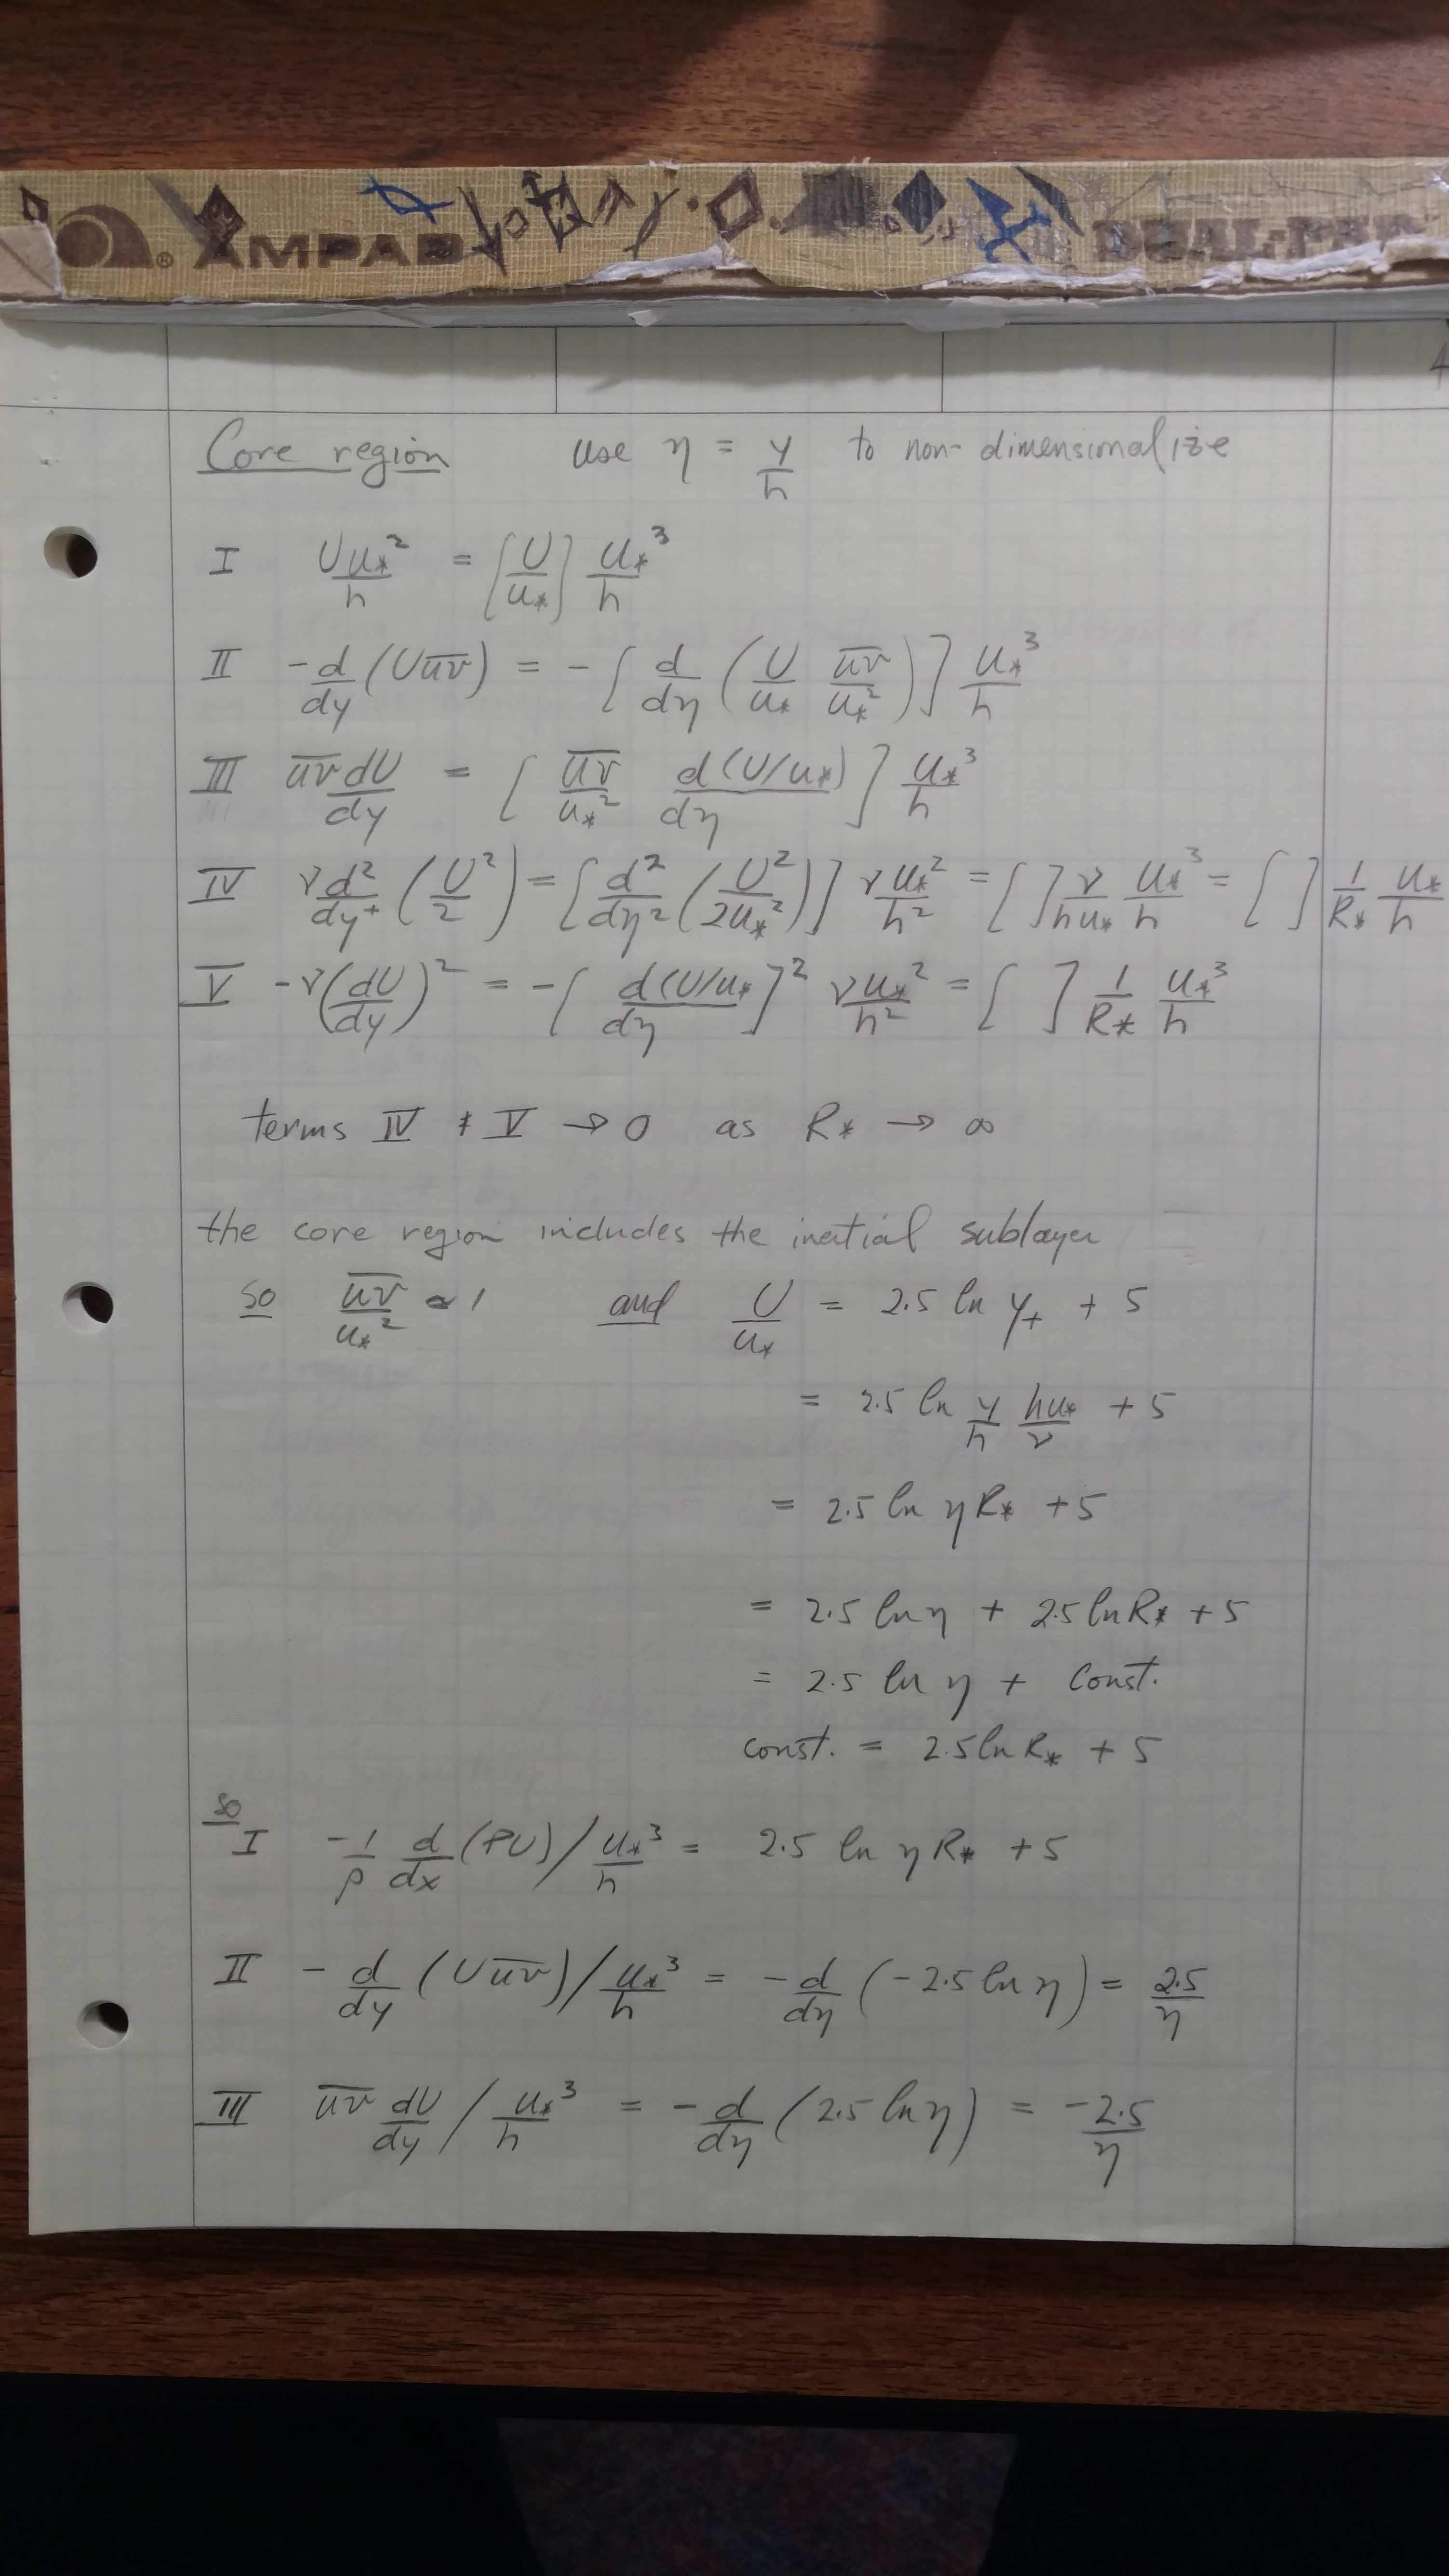 AMPAD
DUAL-PAD
4
Core region use η = y/h to non-dimensionalize
I Uu*²/h = [U/u*] u*³/h
II -d/dy (U u̅v̅) = -[d/dη (U/u* u̅v̅/u*²)] u*³/h
III u̅v̅ dU/dy = [u̅v̅/u*² d(U/u*)/dη] u*³/h
IV ν d²/dy⁺ (U²/2) = [d²/dη² (U²/2u*²)] ν u*²/h² = [ ] ν/hu* u*³/h = [ ] 1/R* u*/h
V -ν(dU/dy)² = -[d(U/u*/dη]² ν u*²/h² = [ ] 1/R* u*³/h
terms IV & V → 0 as R* → ∞
the core region includes the inertial sublayer
so u̅v̅/u*² ≃ 1 and U/u* = 2.5 ln y+ + 5
= 2.5 ln y/h hu*/ν + 5
= 2.5 ln ηR* + 5
= 2.5 ln η + 2.5 ln R* + 5
= 2.5 ln η + const.
const. = 2.5 ln R* + 5
so
I -1/ρ d/dx (PU) / u*³/h = 2.5 ln ηR* + 5
II - d/dy (U u̅v̅) / u*³/h = -d/dη (-2.5 ln η) = 2.5/η
III u̅v̅ dU/dy / u*³/h = -d/dη (2.5 ln η) = -2.5/η